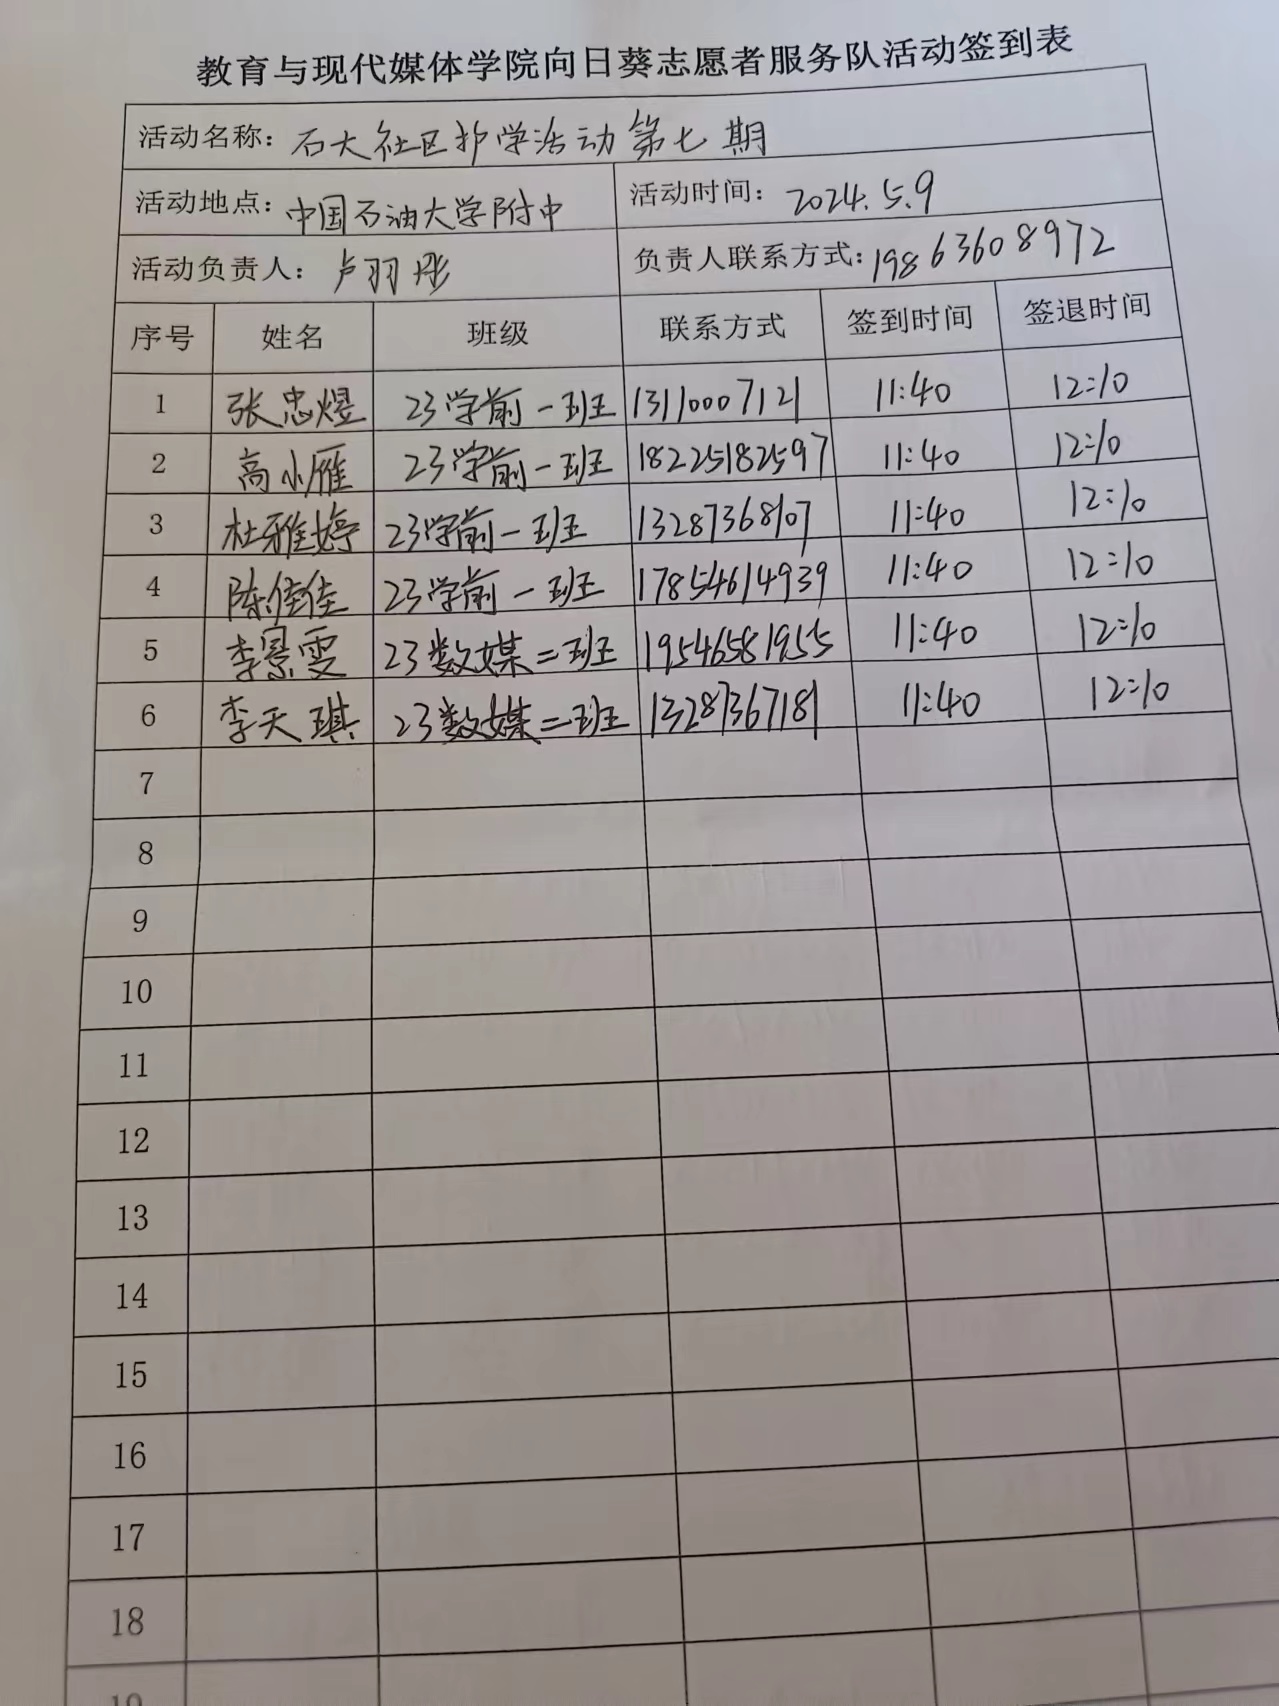 教育与现代媒体学院向日葵志愿者服务队活动签到表
活动名称：石大社区护学活动第七期
活动地点：中国石油大学附中 活动时间：2024.5.9
活动负责人：卢羽彤 负责人联系方式：19863608972
序号 姓名 班级 联系方式 签到时间 签退时间
1 张忠煜 23学前一班 13110007121 11:40 12:10
2 高小雁 23学前一班 18225182597 11:40 12:10
3 杜雅婷 23学前一班 13287368107 11:40 12:10
4 陈佳佳 23学前一班 17854614939 11:40 12:10
5 李景雯 23数媒二班 19546581955 11:40 12:10
6 李天琪 23数媒二班 13287367181 11:40 12:10
7
8
9
10
11
12
13
14
15
16
17
18
19